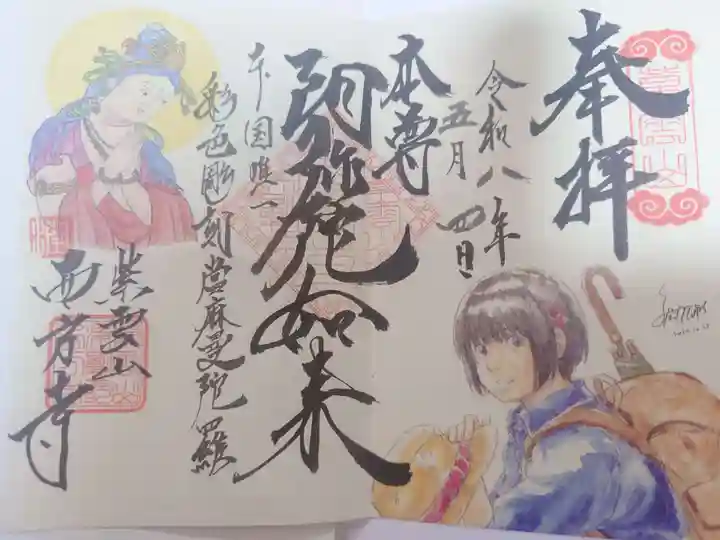 奉拝
紫雲山
令和八年
五月四日
本尊
阿弥陀如来
本国唯一
彩色彫刻當麻曼陀羅
紫雲山
西方寺